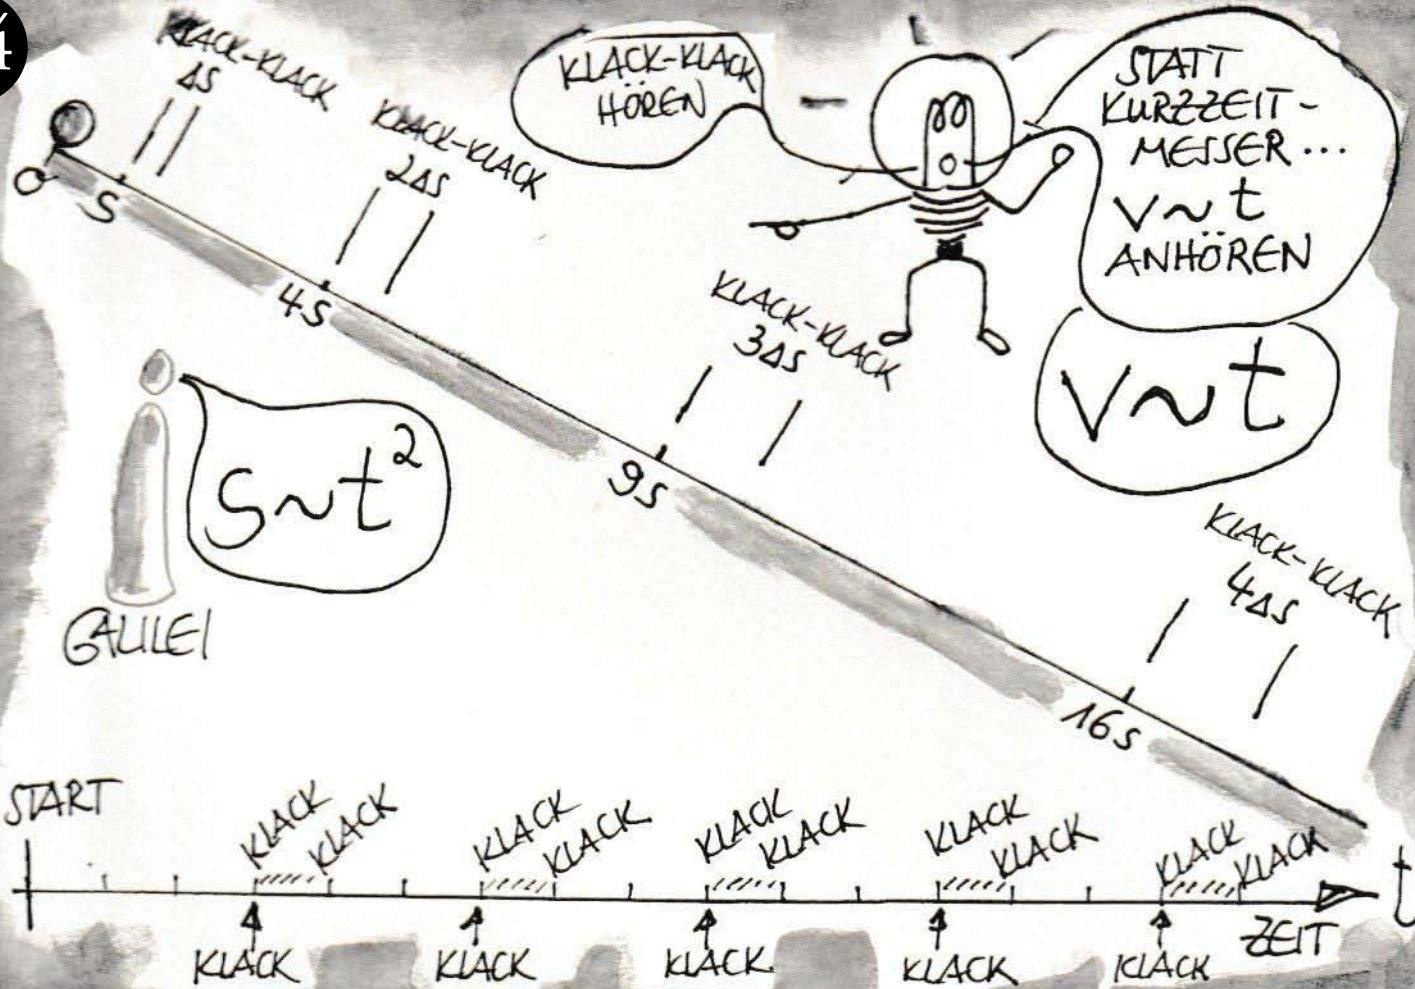 4
KLACK-KLACK
ΔS
KLACK-KLACK
2ΔS
KLACK-KLACK
HÖREN
STATT
KURZZEIT-
MESSER...
V~t
ANHÖREN
S
4S
KLACK-KLACK
3ΔS
V~t
9S
S~t²
GALILEI
KLACK-KLACK
4ΔS
16S
START
KLACK
KLACK
KLACK
KLACK
KLACK
KLACK
KLACK
KLACK
KLACK
KLACK
t
ZEIT
KLACK
KLACK
KLACK
KLACK
KLACK